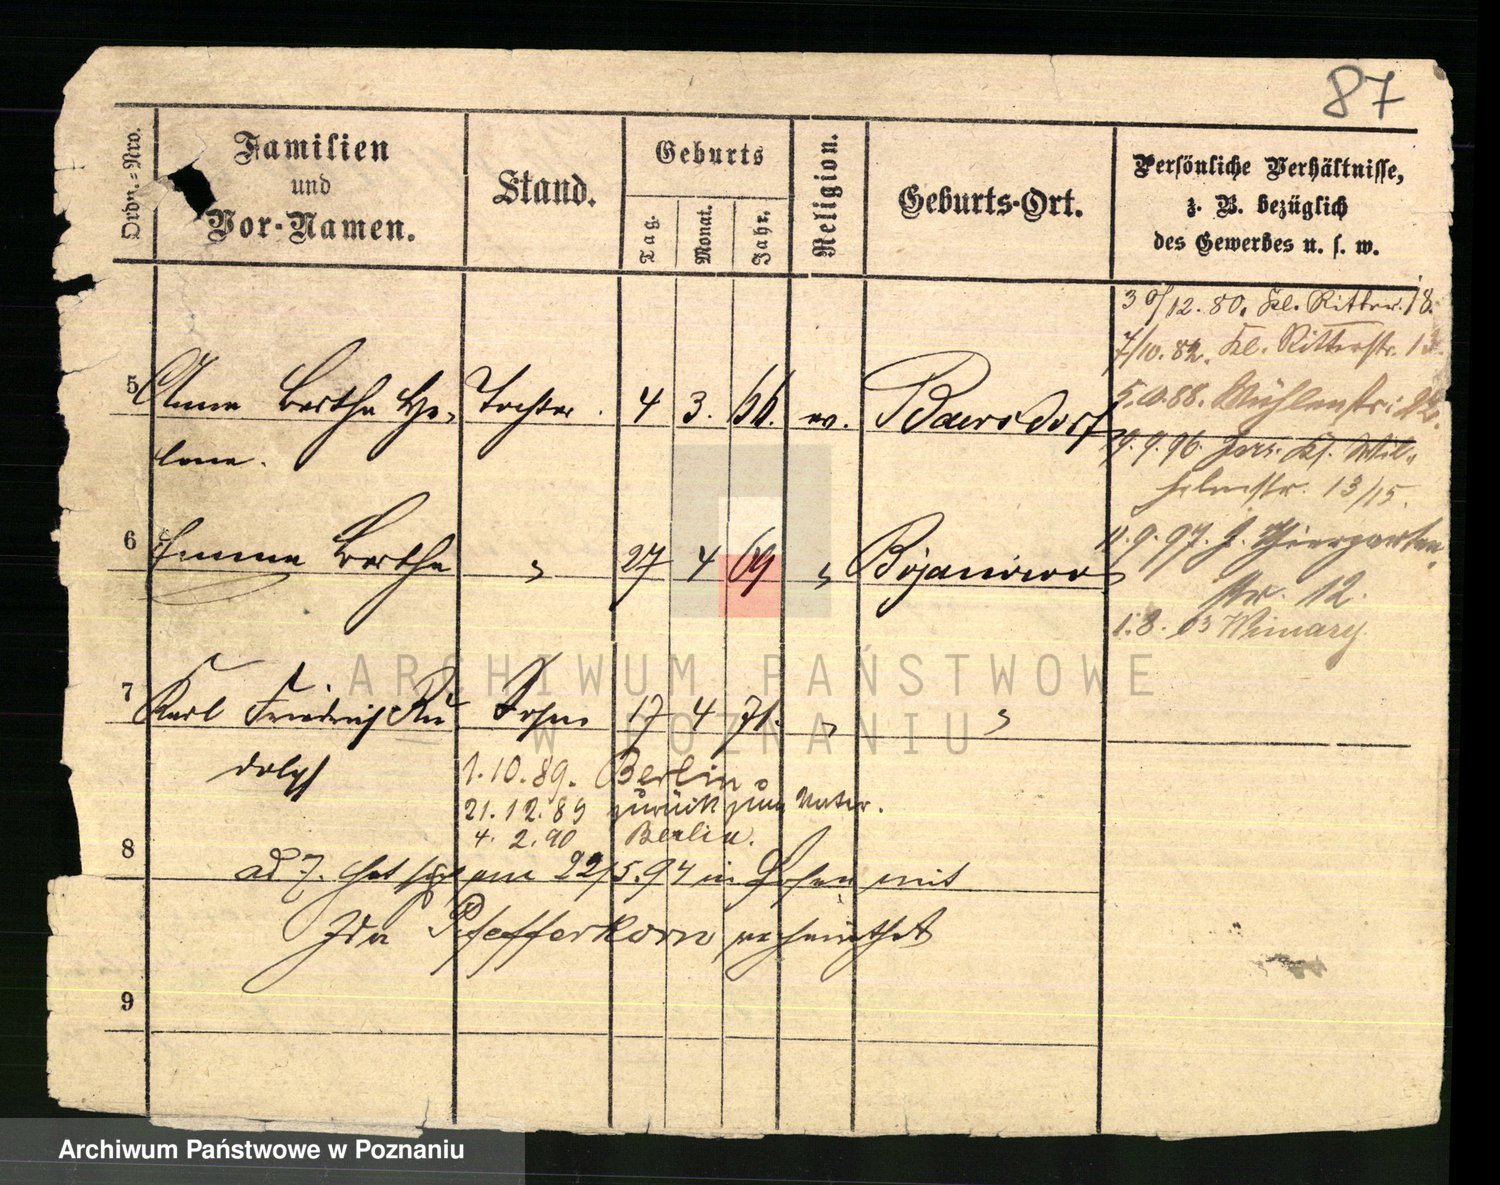 87
Ordn.-Nro.
Familien
und
Vor-Namen.
Stand.
Geburts
Tag.
Monat.
Jahr.
Religion.
Geburts-Ort.
Persönliche Verhältnisse,
z. B. bezüglich
des Gewerbes u. s. w.
30/12. 80. Kl. Ritterst. 18.
7/10. 82. Kl. Ritterstr. 13
5.10.88. Mühlenstr: 22.
5 Anna Bertha He- Tochter. 4 3. 66. ev. Baersdorf
lene.
9.9.96. Kl. Wil-
helmstr. 13/15.
6 Emma Bertha " 27 4 69 " Bojanowo
11.9.97. gr. Thiergarten
str. 12.
1.8.03 Winiary.
7 Karl Friedrich Ru- Sohn 17 4 71. " "
dolph
1.10.89. Berlin.
21.12.89 zurück zum Vater.
4. 2. 90 Berlin.
8
ad 7. Hat sich am 22/5.94 in Posen mit
Ida Pfefferkorn verheirathet
9
ARCHIWUM PAŃSTWOWE
W POZNANIU
Archiwum Państwowe w Poznaniu